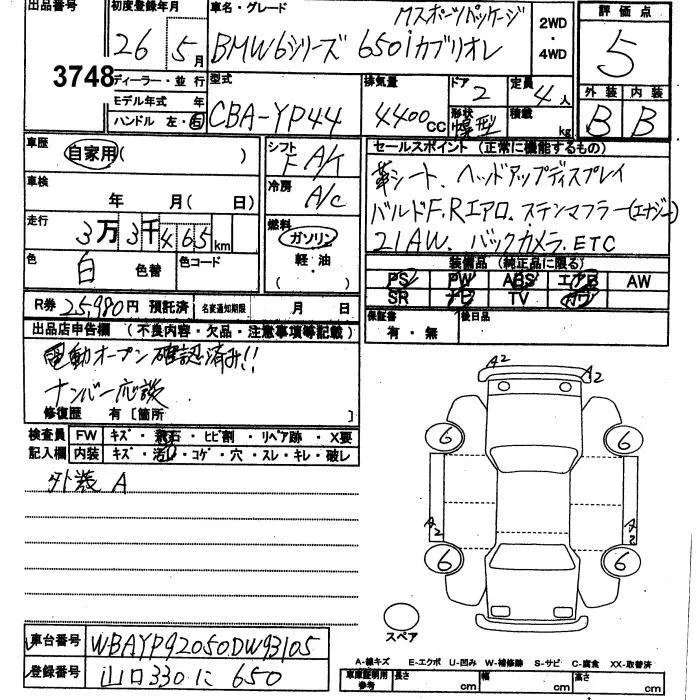 出品番号
3748
初度登録年月
26 5月
ディーラー・並行
モデル年式 年
ハンドル 左・右
車名・グレード
Mスポーツパッケージ
BMW6シリーズ 650iカブリオレ
2WD
・
4WD
評価点
5
外装 内装
B B
型式
CBA-YP44
排気量
4400cc
ドア
2
形状
幌型
定員
4人
積載
kg
車歴
自家用( )
車検
年 月( 日)
走行
3万3千465km
色
白
色替
色コード
シフト
F A/T
冷房
A/C
燃料
ガソリン
軽・油
( )
セールスポイント (正常に機能するもの)
革シート、ヘッドアップディスプレイ
バルドF.Rエアロ、ステンマフラー(エナジー)
21AW、バックカメラ、ETC
装備品 (純正品に限る)
PS PW ABS エアB AW
SR ナビ TV カワ
保証書
有・無
後日品
R券 25,980円 預託済
名変通知期限 月 日
出品店申告欄 (不良内容・欠品・注意事項等記載)
電動オープン確認済み!!
ナンバー応談
修復歴 有[箇所 ]
検査員 FW キズ・飛石・ヒビ割・リペア跡・X要
記入欄 内装 キズ・汚れ・コゲ・穴・スレ・キレ・破レ
外装 A
A2
A2
6
6
A2
A2
6
6
スペア
車台番号 WBAYP92050DW93105
登録番号 山口330に 650
A-線キズ E-エクボ U-凹み W-補修跡 S-サビ C-腐食 XX-取替済
車庫証明用
参考
長さ cm
幅 cm
高さ cm